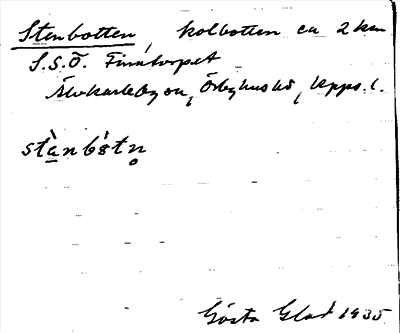 Stenbotten, kolbotten ca 2 km
S.S.Ö. Finntorpet
Älvkarleby sn, Örbyhus hd, Upps. l.
stà̱nbòtn̥
Gösta Glad 1935